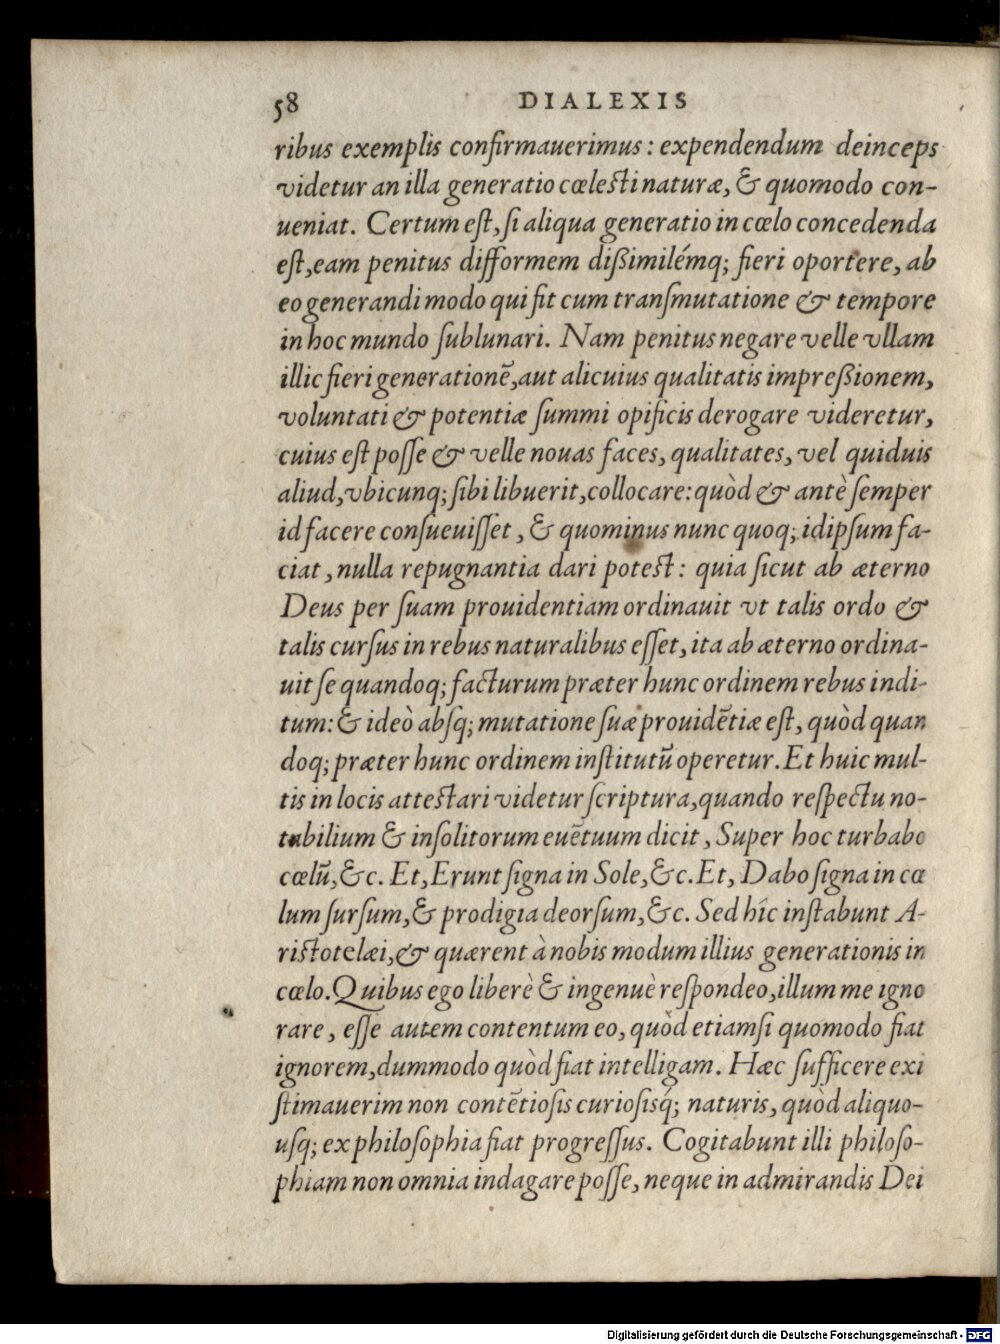 58 DIALEXIS
ribus exemplis confirmauerimus: expendendum deinceps
videtur an illa generatio cœlesti naturæ, & quomodo con-
ueniat. Certum eſt, ſi aliqua generatio in cœlo concedenda
eſt, eam penitus difformem dißimilémq; fieri oportere, ab
eo generandi modo qui fit cum tranſmutatione & tempore
in hoc mundo ſublunari. Nam penitus negare velle vllam
illic fieri generationē, aut alicuius qualitatis impreßionem,
voluntati & potentiæ ſummi opificis derogare videretur,
cuius eſt poſſe & velle nouas faces, qualitates, vel quiduis
aliud, vbicunq; ſibi libuerit, collocare: quòd & antè ſemper
id facere conſueuiſſet, & quominus nunc quoq; idipſum fa-
ciat, nulla repugnantia dari poteſt: quia ſicut ab æterno
Deus per ſuam prouidentiam ordinauit vt talis ordo &
talis curſus in rebus naturalibus eſſet, ita ab æterno ordina-
uit ſe quandoq; facturum præter hunc ordinem rebus indi-
tum: & ideò abſq; mutatione ſuæ prouidētiæ eſt, quòd quan
doq; præter hunc ordinem inſtitutū operetur. Et huic mul-
tis in locis atteſtari videtur ſcriptura, quando reſpectu no-
tabilium & inſolitorum euētuum dicit, Super hoc turbabo
cœlū, &c. Et, Erunt ſigna in Sole, &c. Et, Dabo ſigna in cœ
lum ſurſum, & prodigia deorſum, &c. Sed hîc inſtabunt A-
riſtotelæi, & quærent à nobis modum illius generationis in
cœlo. Quibus ego liberè & ingenuè reſpondeo, illum me igno
rare, eſſe autem contentum eo, quòd etiamſi quomodo fiat
ignorem, dummodo quòd fiat intelligam. Hæc ſufficere exi
ſtimauerim non contētioſis curioſisq́; naturis, quòd aliquo-
uſq; ex philoſophia fiat progreſſus. Cogitabunt illi philoſo-
phiam non omnia indagare poſſe, neque in admirandis Dei
Digitalisierung gefördert durch die Deutsche Forschungsgemeinschaft - DFG